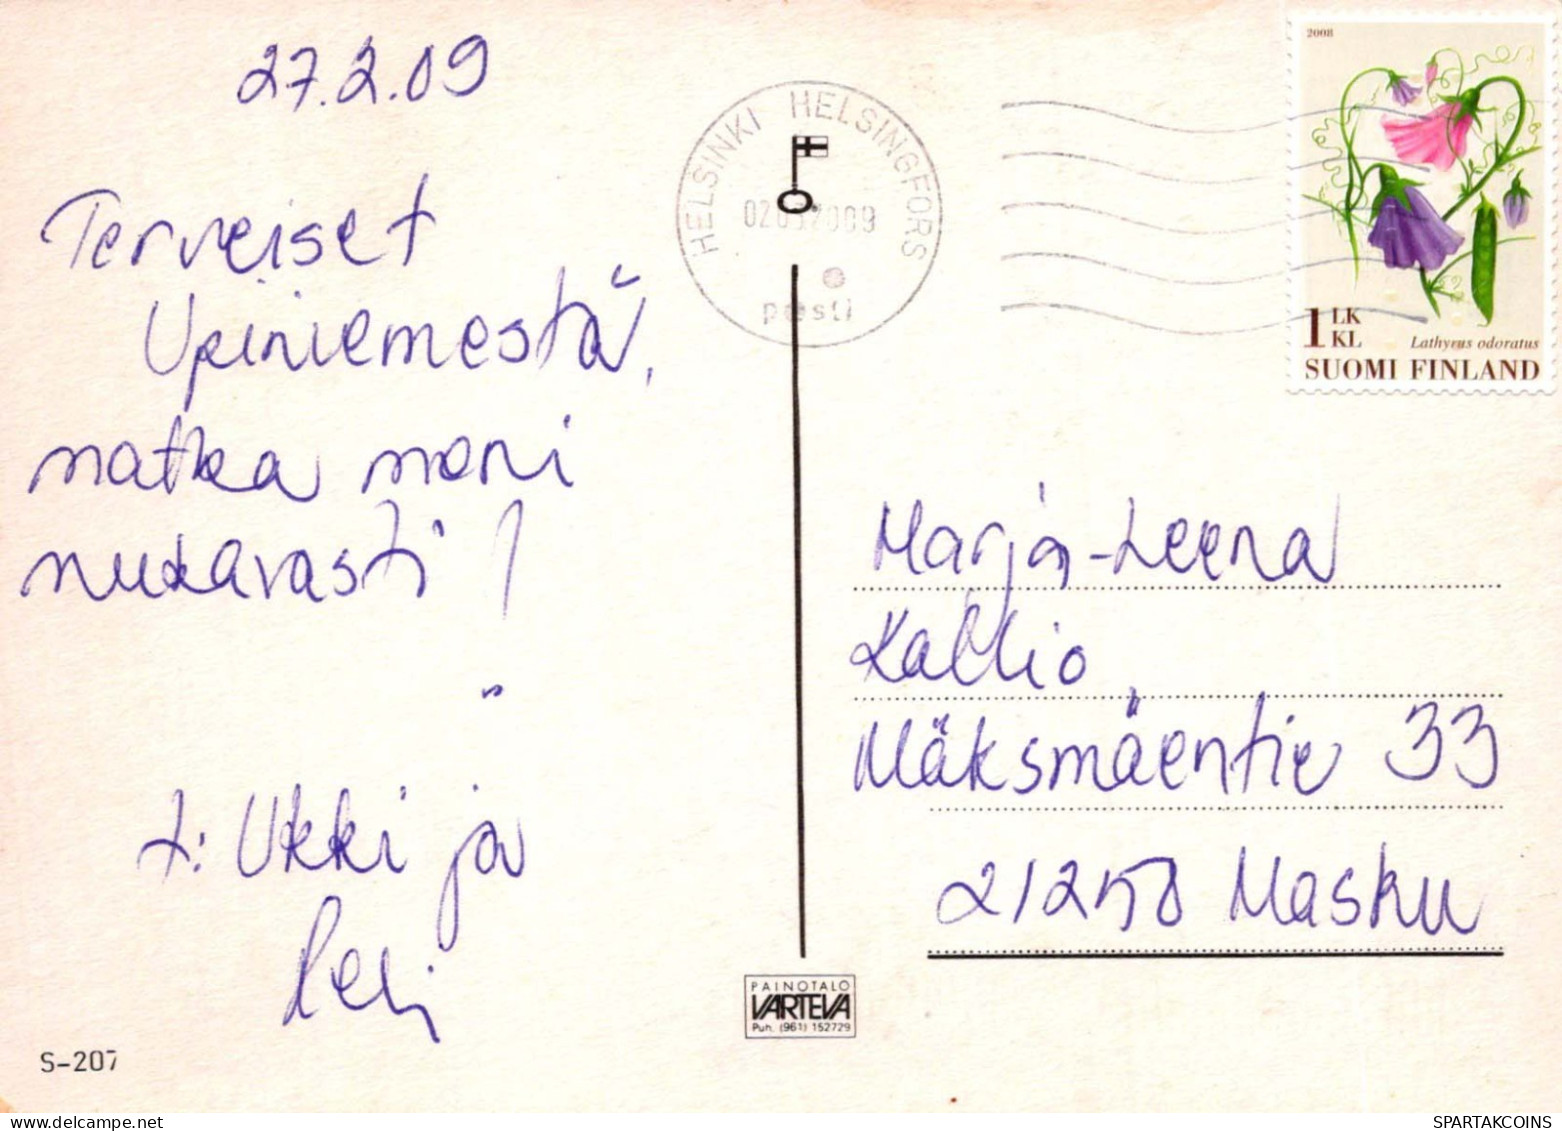 27.2.09
Terveiset
Upiniemestä,
matka meni
mukavasti!
t: Ukki ja
HELSINKI HELSINGFORS
posti
2008
1 LK
KL
Lathyrus odoratus
SUOMI FINLAND
Marja-Leena
Kallio
Mäksmäentie 33
21250 Masku
PAINOTALO
VARTEVA
Puh. (961) 152729
S-207
SPARTAKCOINS